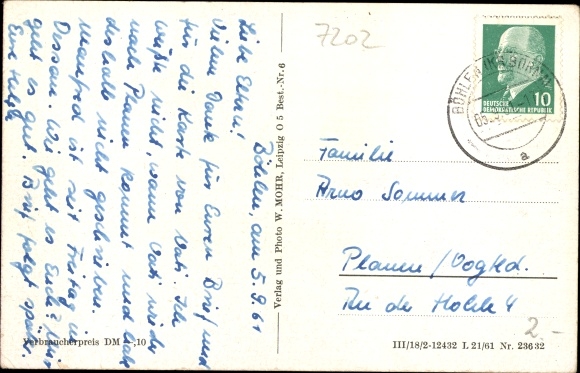 Böhlen, am 5.9.61
Liebe Eltern!
Vielen Dank für Euren Brief und
für die Karte von Vati. Ich
weißte nicht, wann Vati wieder
nach Plauen kommt und habe
deshalb nicht geschrieben.
Manfred ist seit Freitag in
Dessau. Wie geht es Euch? Uns
geht es gut. Brief folgt später.
Eure Helga
Verbraucherpreis DM -,10
Verlag und Photo W. MOHR, Leipzig O 5 Best.-Nr. 6
7202
DEUTSCHE
DEMOKRATISCHE REPUBLIK
10
BÖHLEN
a
Familie
Arno Sommer
Plauen/Vogtld.
An der Hohle 4
2.-
III/18/2-12432 L 21/61 Nr. 23632